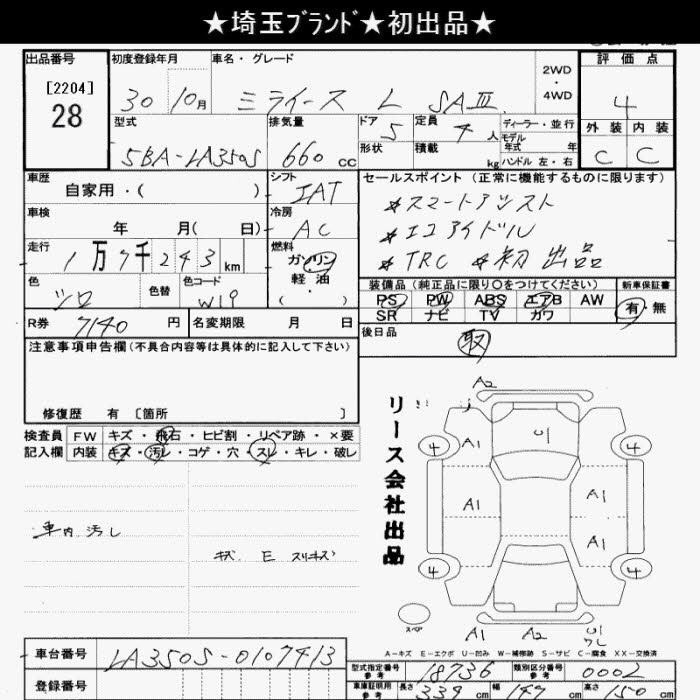 ★埼玉ﾌﾞﾗﾝﾄﾞ★初出品★
出品番号 [2204] 28
初度登録年月 30 10月
車名・グレード ミライース L SAⅢ
2WD・4WD
評価点 4
外装 C 内装 C
型式 5BA-LA350S
排気量 660 cc
ドア 5
形状
定員 4人
積載 kg
ディーラー・並行
モデル年式 年
ハンドル 左・右
車歴 自家用・( )
シフト IAT
車検 年 月( 日)
冷房 AC
走行 1万7千243km
燃料 ガソリン 軽油 ( ・ )
色 シロ
色替
色コード W19
R券 7140 円
名変期限 月 日
セールスポイント (正常に機能するものに限ります)
*スマートアシスト
*エコアイドル
*TRC *初出品
装備品(純正品に限り○をつけてください)
PS PW ABS エアB AW
SR ナビ TV ガワ
新車保証書 有・無
後日品 取
注意事項申告欄(不具合内容等は具体的に記入して下さい)
修復歴 有 〔箇所 〕
検査員記入欄
FW キズ・飛石・ヒビ割・リペア跡・×要
内装 キズ・汚レ・コゲ・穴・スレ・キレ・破レ
車内汚し
キズ E スリキズ
リース会社出品
A2
A1 U1
4 4
A1 A1
A1
4 4
スペア
U1 A2 U1
A-キズ E-エクボ U-凹み W-補修跡 S-サビ C-腐食 XX-交換済
車台番号 LA350S-0107413
登録番号
型式指定番号 参考 18736
類別区分番号 参考 0002
車庫証明用 参考 長さ 339cm 幅 147cm 高さ 150cm